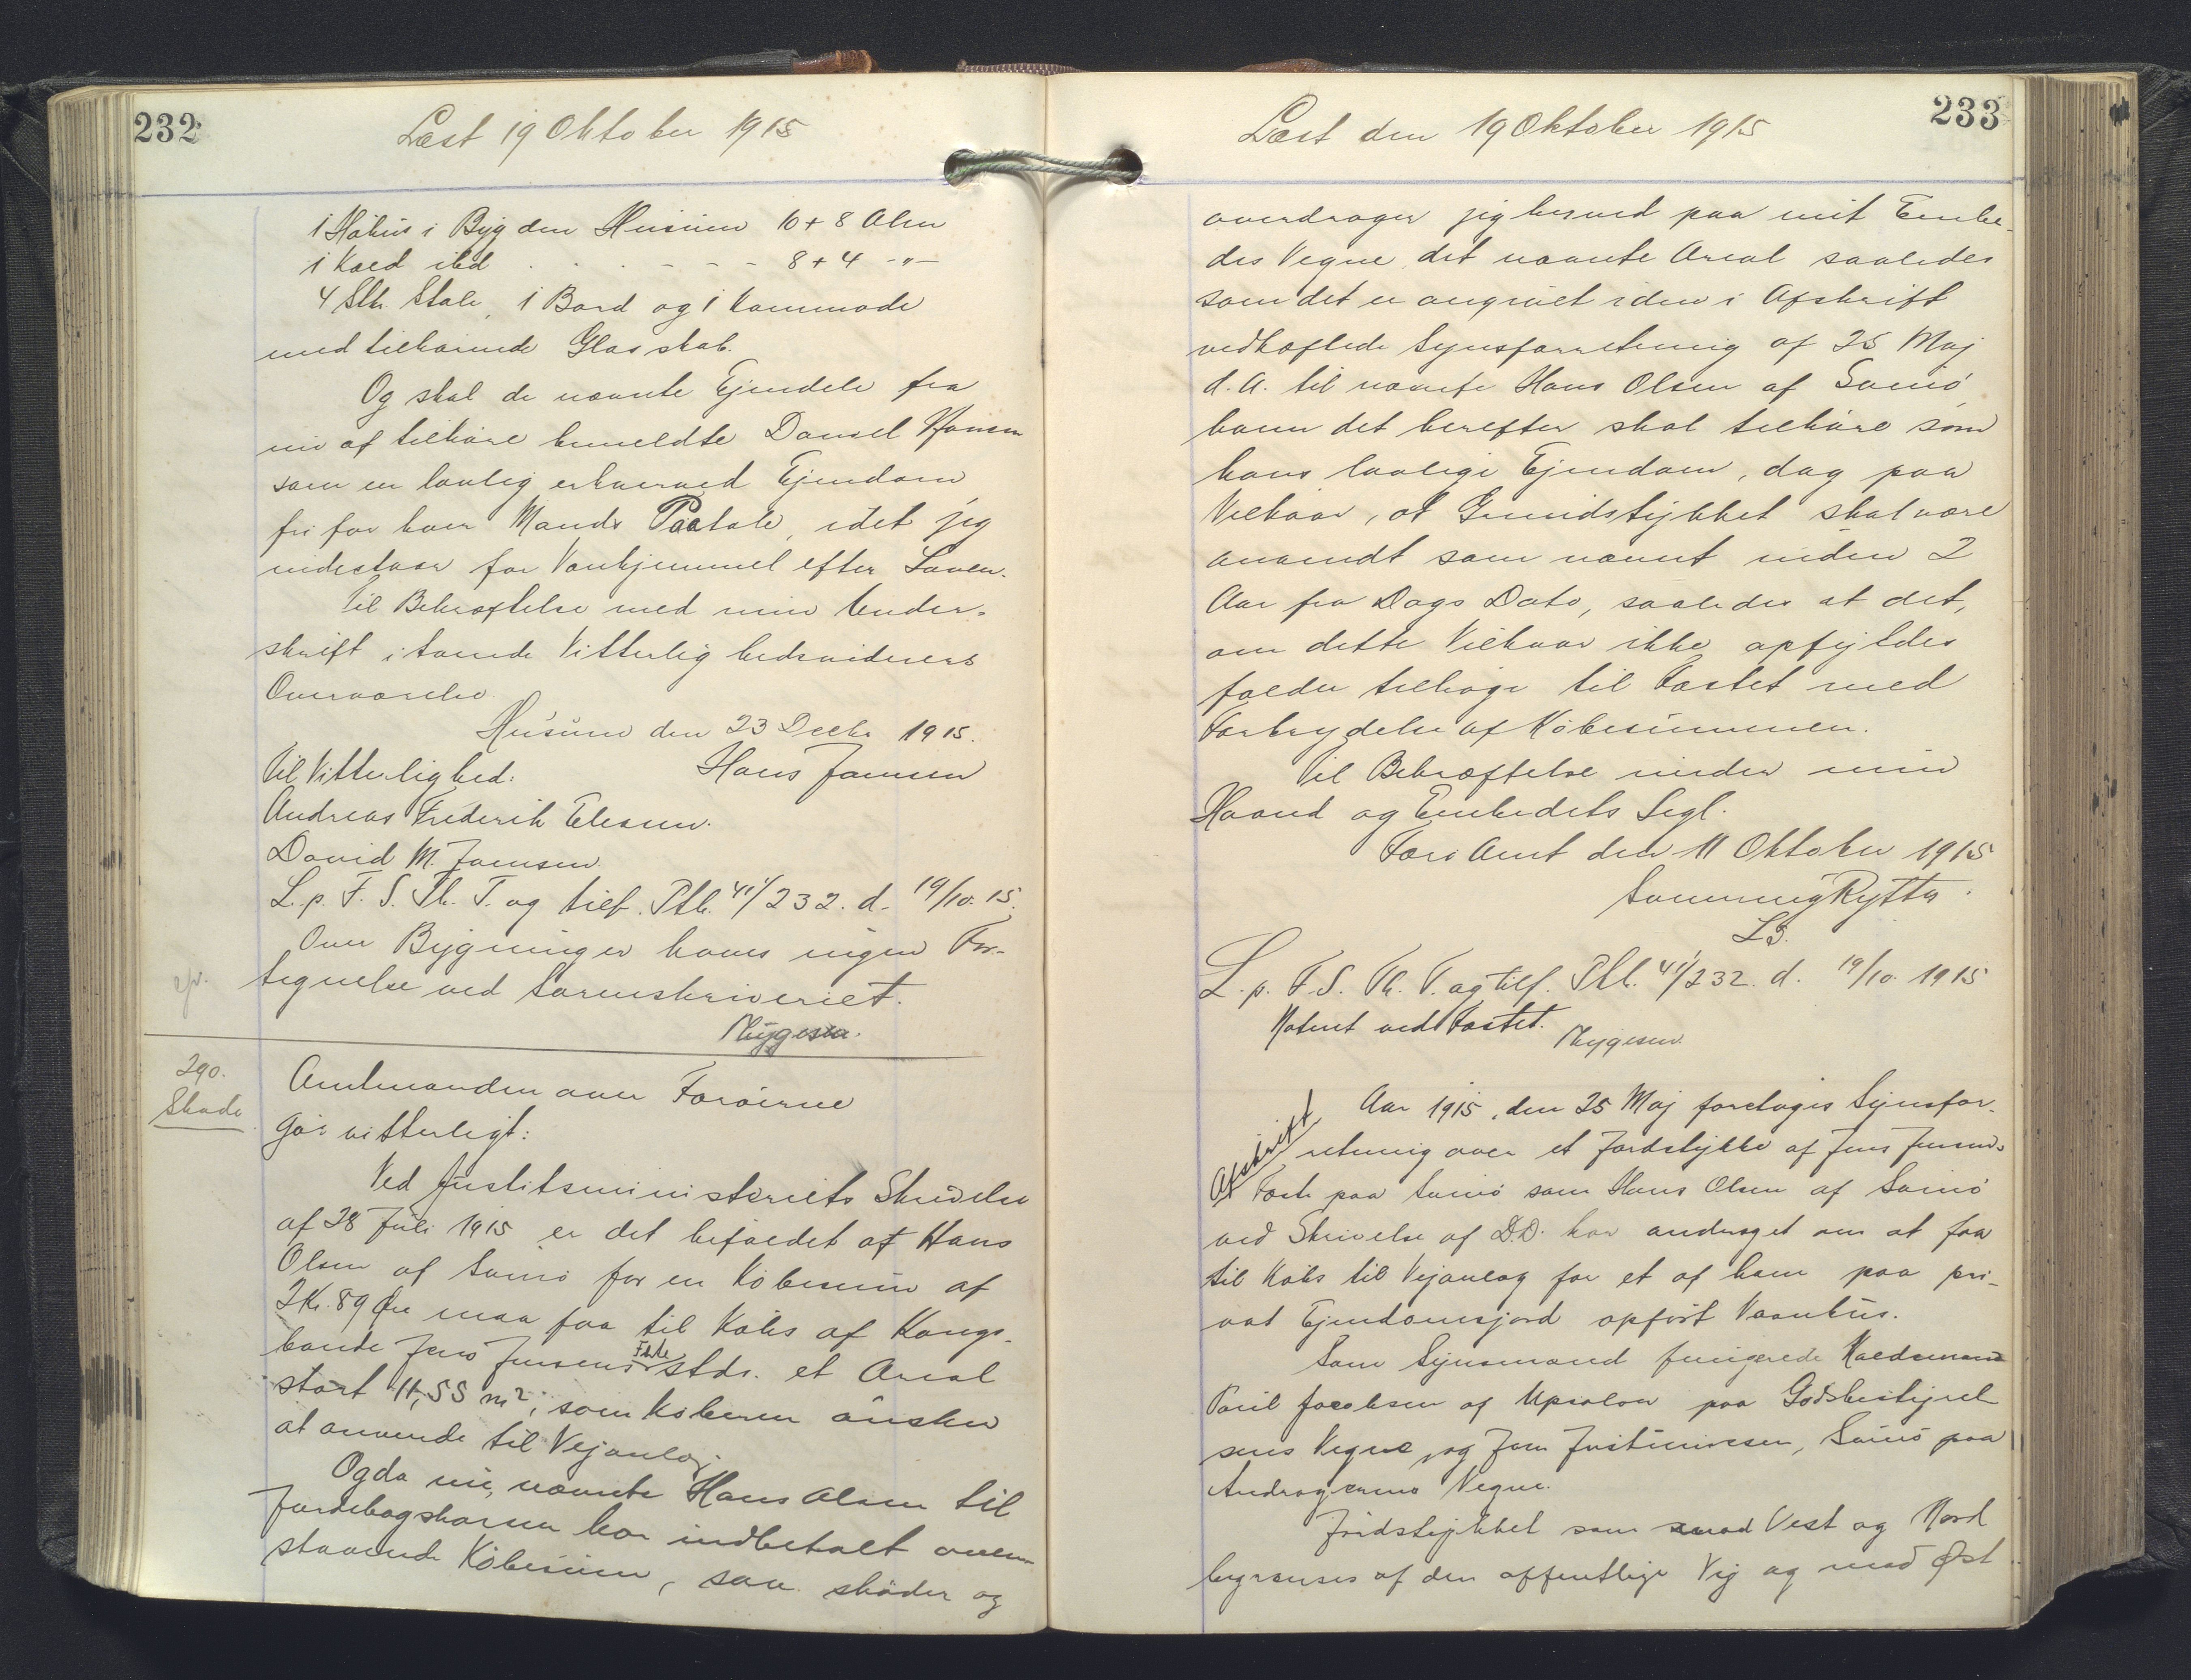 232
Læst 19 Oktober 1915
1 Höhus i Bygden Husum 10 + 8 Alen
1 Kaed ibd . . . - - - 8 + 4 -"-
4 Stk. Stole, 1 Bord og 1 Kommode
med tilhørende Glasskab.
Og skal de nævnte Ejendele fra
nu af tilhøre bemeldte Daniel Hansen
som en lovlig erhverved Ejendom
fri for hver Mands Paatale, idet jeg
indestaar for Vanhjemmel efter Loven.
Til Bekræftelse med min Under-
skrift i tvende Vitterlighedsvidners
Overværelse.
Husum den 23 Decbr 1915.
Til Vitterlighed: Hans Joensen
Andreas Frederik Eliesen.
David M. Joensen.
L. p. F. S. Th. T. og tilf. Ptk. 41/232. d. 19/10. 15.
Over Bygninger haves ingen For-
tegnelse ved Sorenskriveriet.
Thygesen.
290.
Skøde
Amtmanden over Færøerne
gör vitterligt:
Ved Justitsministeriets Skrivelse
af 28 Juli 1915 er det bifaldet at Hans
Olsen af Svinö for en Købesum af
2 Kr. 89 Øre maa faa til Købs af Kongs-
bonde Jens Jensens Fæste stds. et Areal
stort 11,55 m², som Køberen önsker
at anvende til Vejanlæg.
Og da nu nævnte Hans Olsen til
Jordebogskassen har indbetalt oven-
staaende Købesum, saa skøder og
233
Læst den 19 Oktober 1915
overdrager jeg herved paa mit Embe-
des Vegne det nævnte Areal saaledes
som det er angivet i den i Afskrift
vedhæftede Synsforretning af 25 Maj
d. A. til nævnte Hans Olsen af Svinö,
ham det herefter skal tilhöre som
hans lovlige Ejendom, dog paa
Vilkaar, at Grundstykket skal være
anvendt som nævnt inden 2
Aar fra Dags Dato, saaledes at det,
om dette Vilkaar ikke opfyldes
falder tilbage til Fæstet med
Fortrydelse af Købesummen.
Til Bekræftelse under min
Haand og Embedets Segl.
Færö Amt den 11 Oktober 1915
Svenning Rytter.
LS.
L. p. F. S. Th. T. og tilf. Ptk. 41/232. d. 19/10. 1915
Noteret ved Fæstet.
Thygesen.
Afskrift
Aar 1915, den 25 Maj foretoges Synsfor-
retning over et Jordstykke af Jens Jensens
Fæste paa Svinö som Hans Olsen af Svinö
ved Skrivelse af D.D. har andraget om at faa
til Købs til Vejanlæg for et af ham paa pri-
vat Ejendomsjord opfört Vaanhus.
Som Synsmænd fungerede
Poul Jacobsen af Uppsalon paa Godsbestyrel-
sens Vegne, og Joen Justinussen, Svinö paa
Andragerens Vegne.
Jordstykket som mod Vest og Nord
begrænses af den offentlige Vej og mod Øst